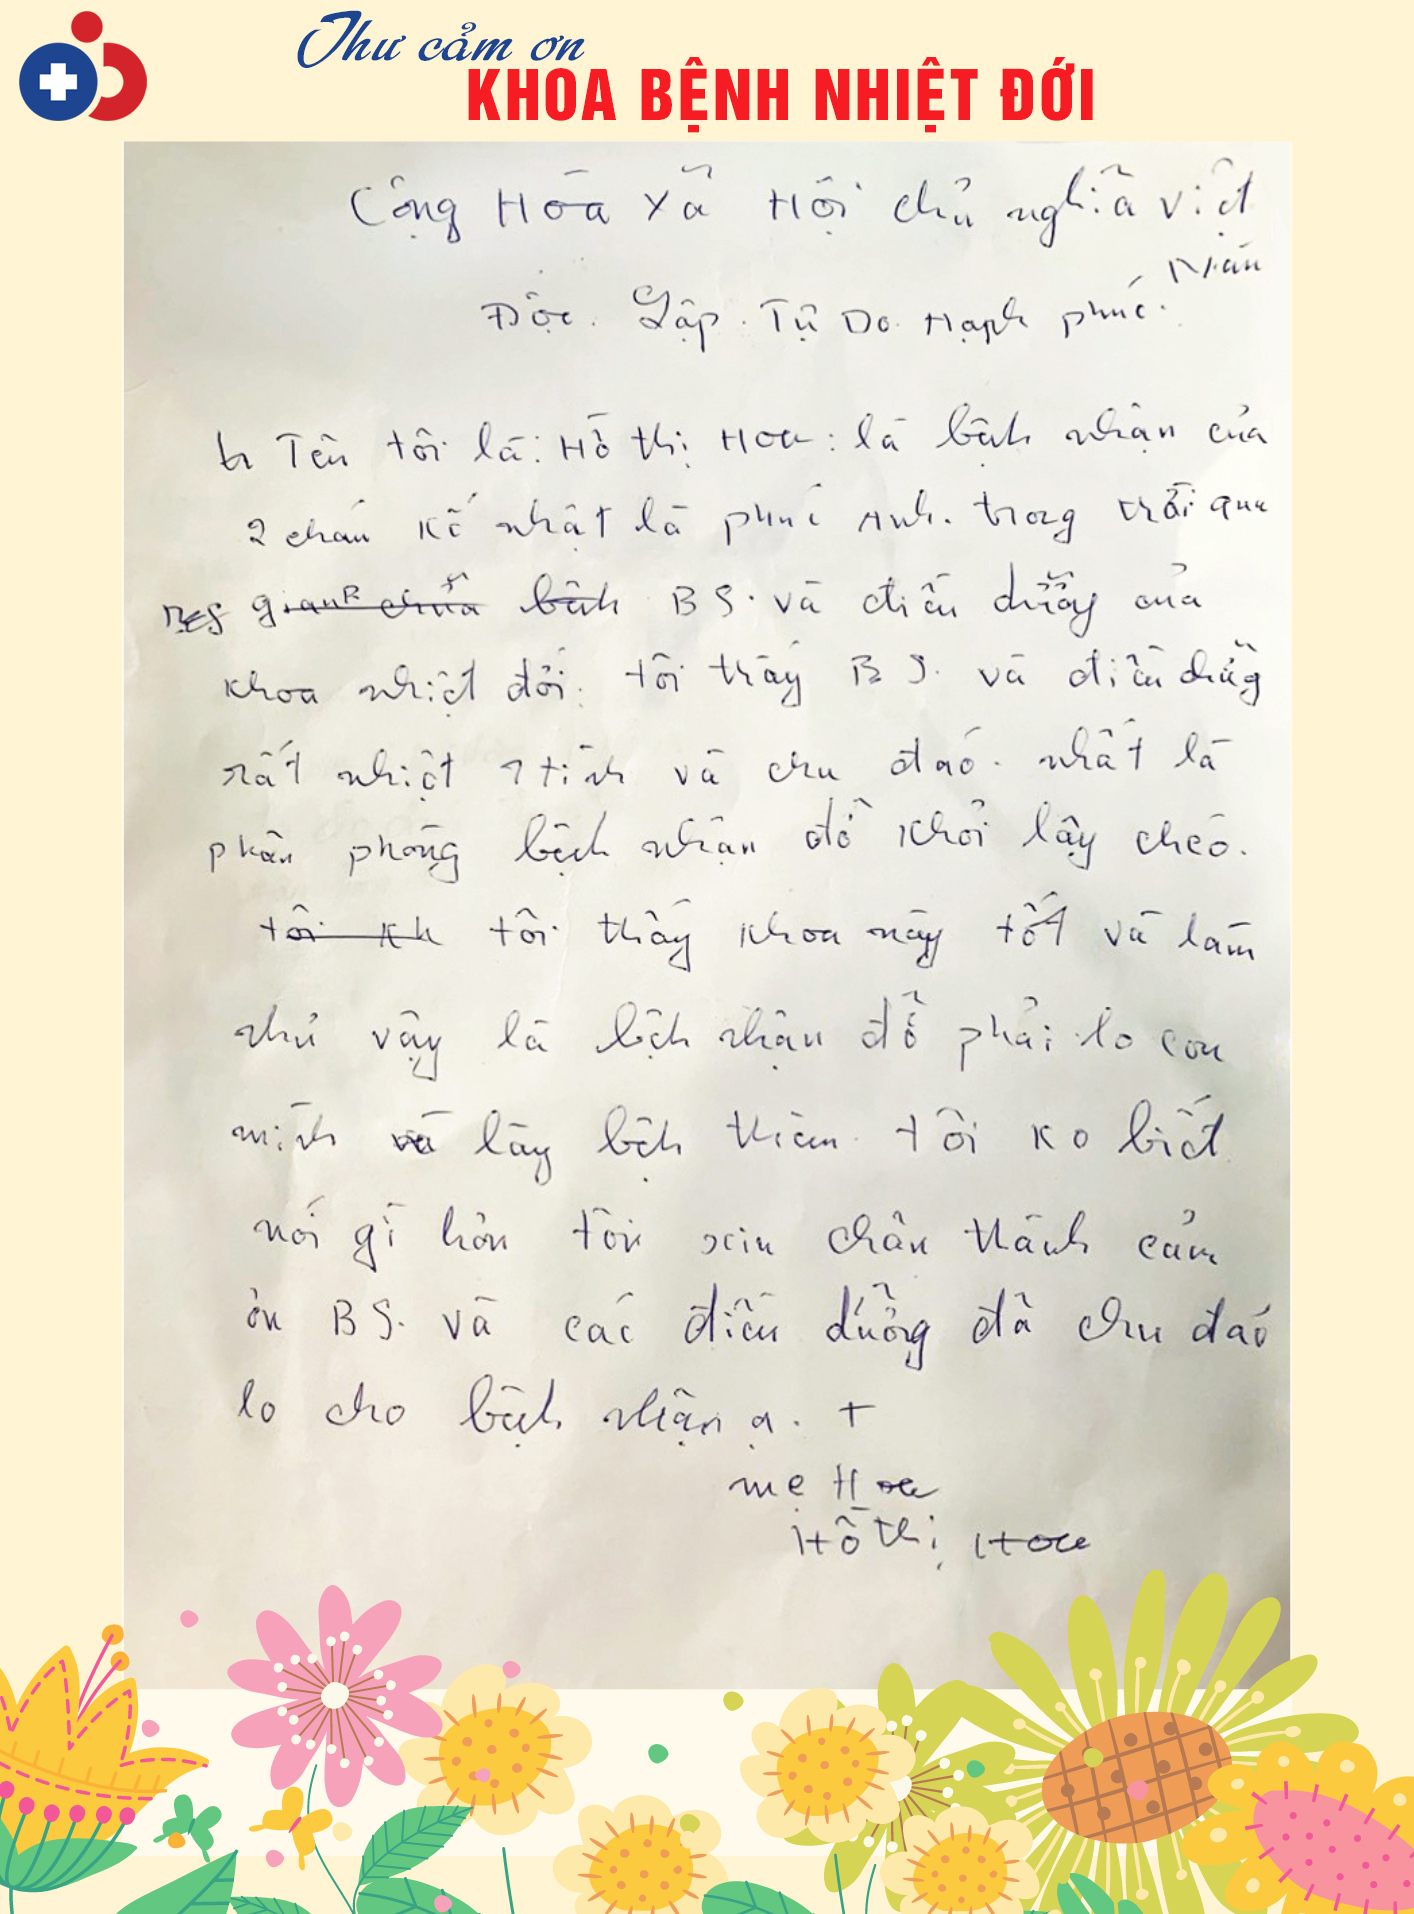 Thư cảm ơn
KHOA BỆNH NHIỆT ĐỚI
Cộng Hòa Xã Hội chủ nghĩa việt
Nam
Độc. Lập. Tự Do. Hạnh phúc.
Tên tôi là: Hồ thị Hoa: là bệnh nhận của
2 cháu Kố nhật là phúc Anh. trong trải qua
BS. và điều dưỡng của
khoa nhiệt đới. tôi tháy BS. và điều dưỡng
rất nhiệt tình và chu đáo. nhất là
phân phòng bệnh nhận đỡ khỏi lây chéo.
tôi kh tôi thấy khoa này tốt và làm
như vậy là bệnh nhận đỡ phải lo con
mình lây bệh thêm. tôi ko biết
nói gì hơn tôi xin chân thành cảm
ơn BS. và các điều dưỡng đã chu đáo
lo cho bệnh nhận ạ. +
mẹ Hoa
Hồ thị Hoa